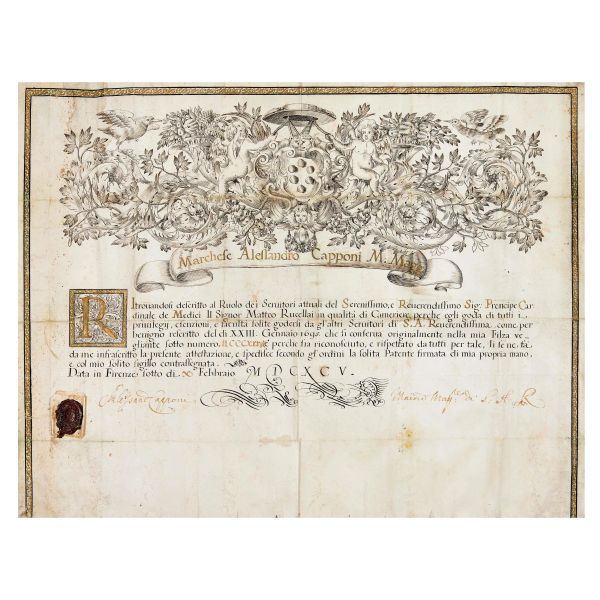 Marchese Alessandro Capponi M. Magg.
Ritrovandosi descritto al Ruolo dei Seruitori attuali del Serenissimo, e Reuerendissimo Sig. Prencipe Car-
dinale de Medici Il Signor Matteo Rucellai in qualità di Cameriere perche egli goda di tutti i
priuilegij, esenzioni, e facultà solite godersi da gl'altri Seruitori di S.A. Reuerendissima come per
benigno rescritto del dì XXIII. Gennaio che si conserua originalmente nella mia Filza ve-
gliante sotto numero perche sia riconosciuto, e rispettato da tutti per tale, si fe ne fà
da me infrascritto la presente attestazione, e spedisce secondo gl'ordini la solita Patente firmata di mia propria mano,
e col mio solito sigillo contrassegnata.
Data in Firenze sotto dì Febbraio MDCXCV.
Alessandro Capponi Maestro Magg.re di S. A. R.